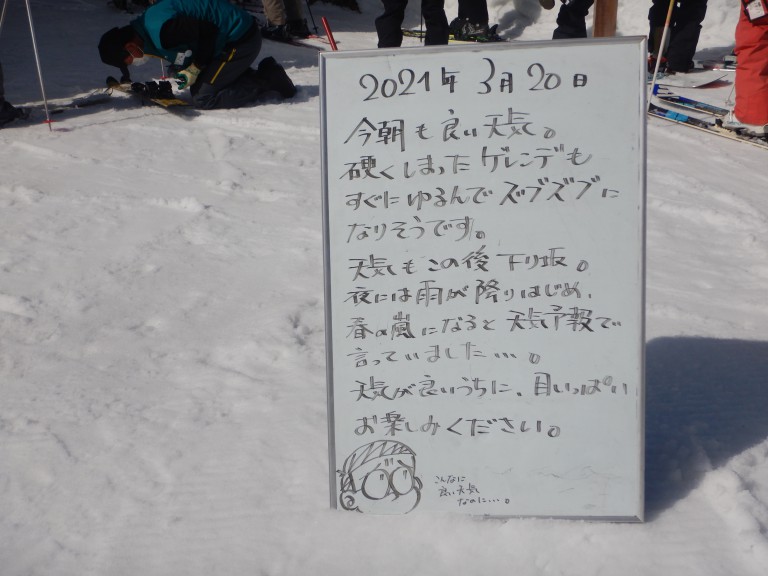 2021年 3月 20日
今朝も良い天気。
硬くしまったゲレンデも
すぐにゆるんでズブズブに
なりそうです。
天気もこの後下り坂。
夜には雨が降りはじめ、
春の嵐になると天気予報で
言っていました…。
天気が良いうちに、目いっぱい
お楽しみください。
こんなに
良い天気
なのに…。